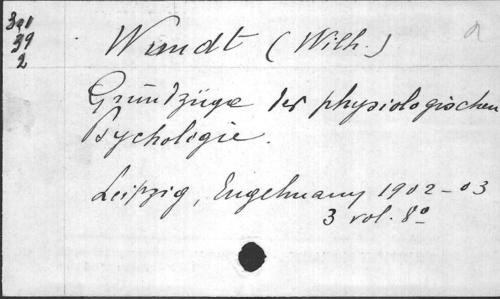 391
39
2
Wundt (Wilh.)
a
Grundzüge der physiologischen
Psychologie.
Leipzig, Engelmann, 1902-03
3 vol. 8º